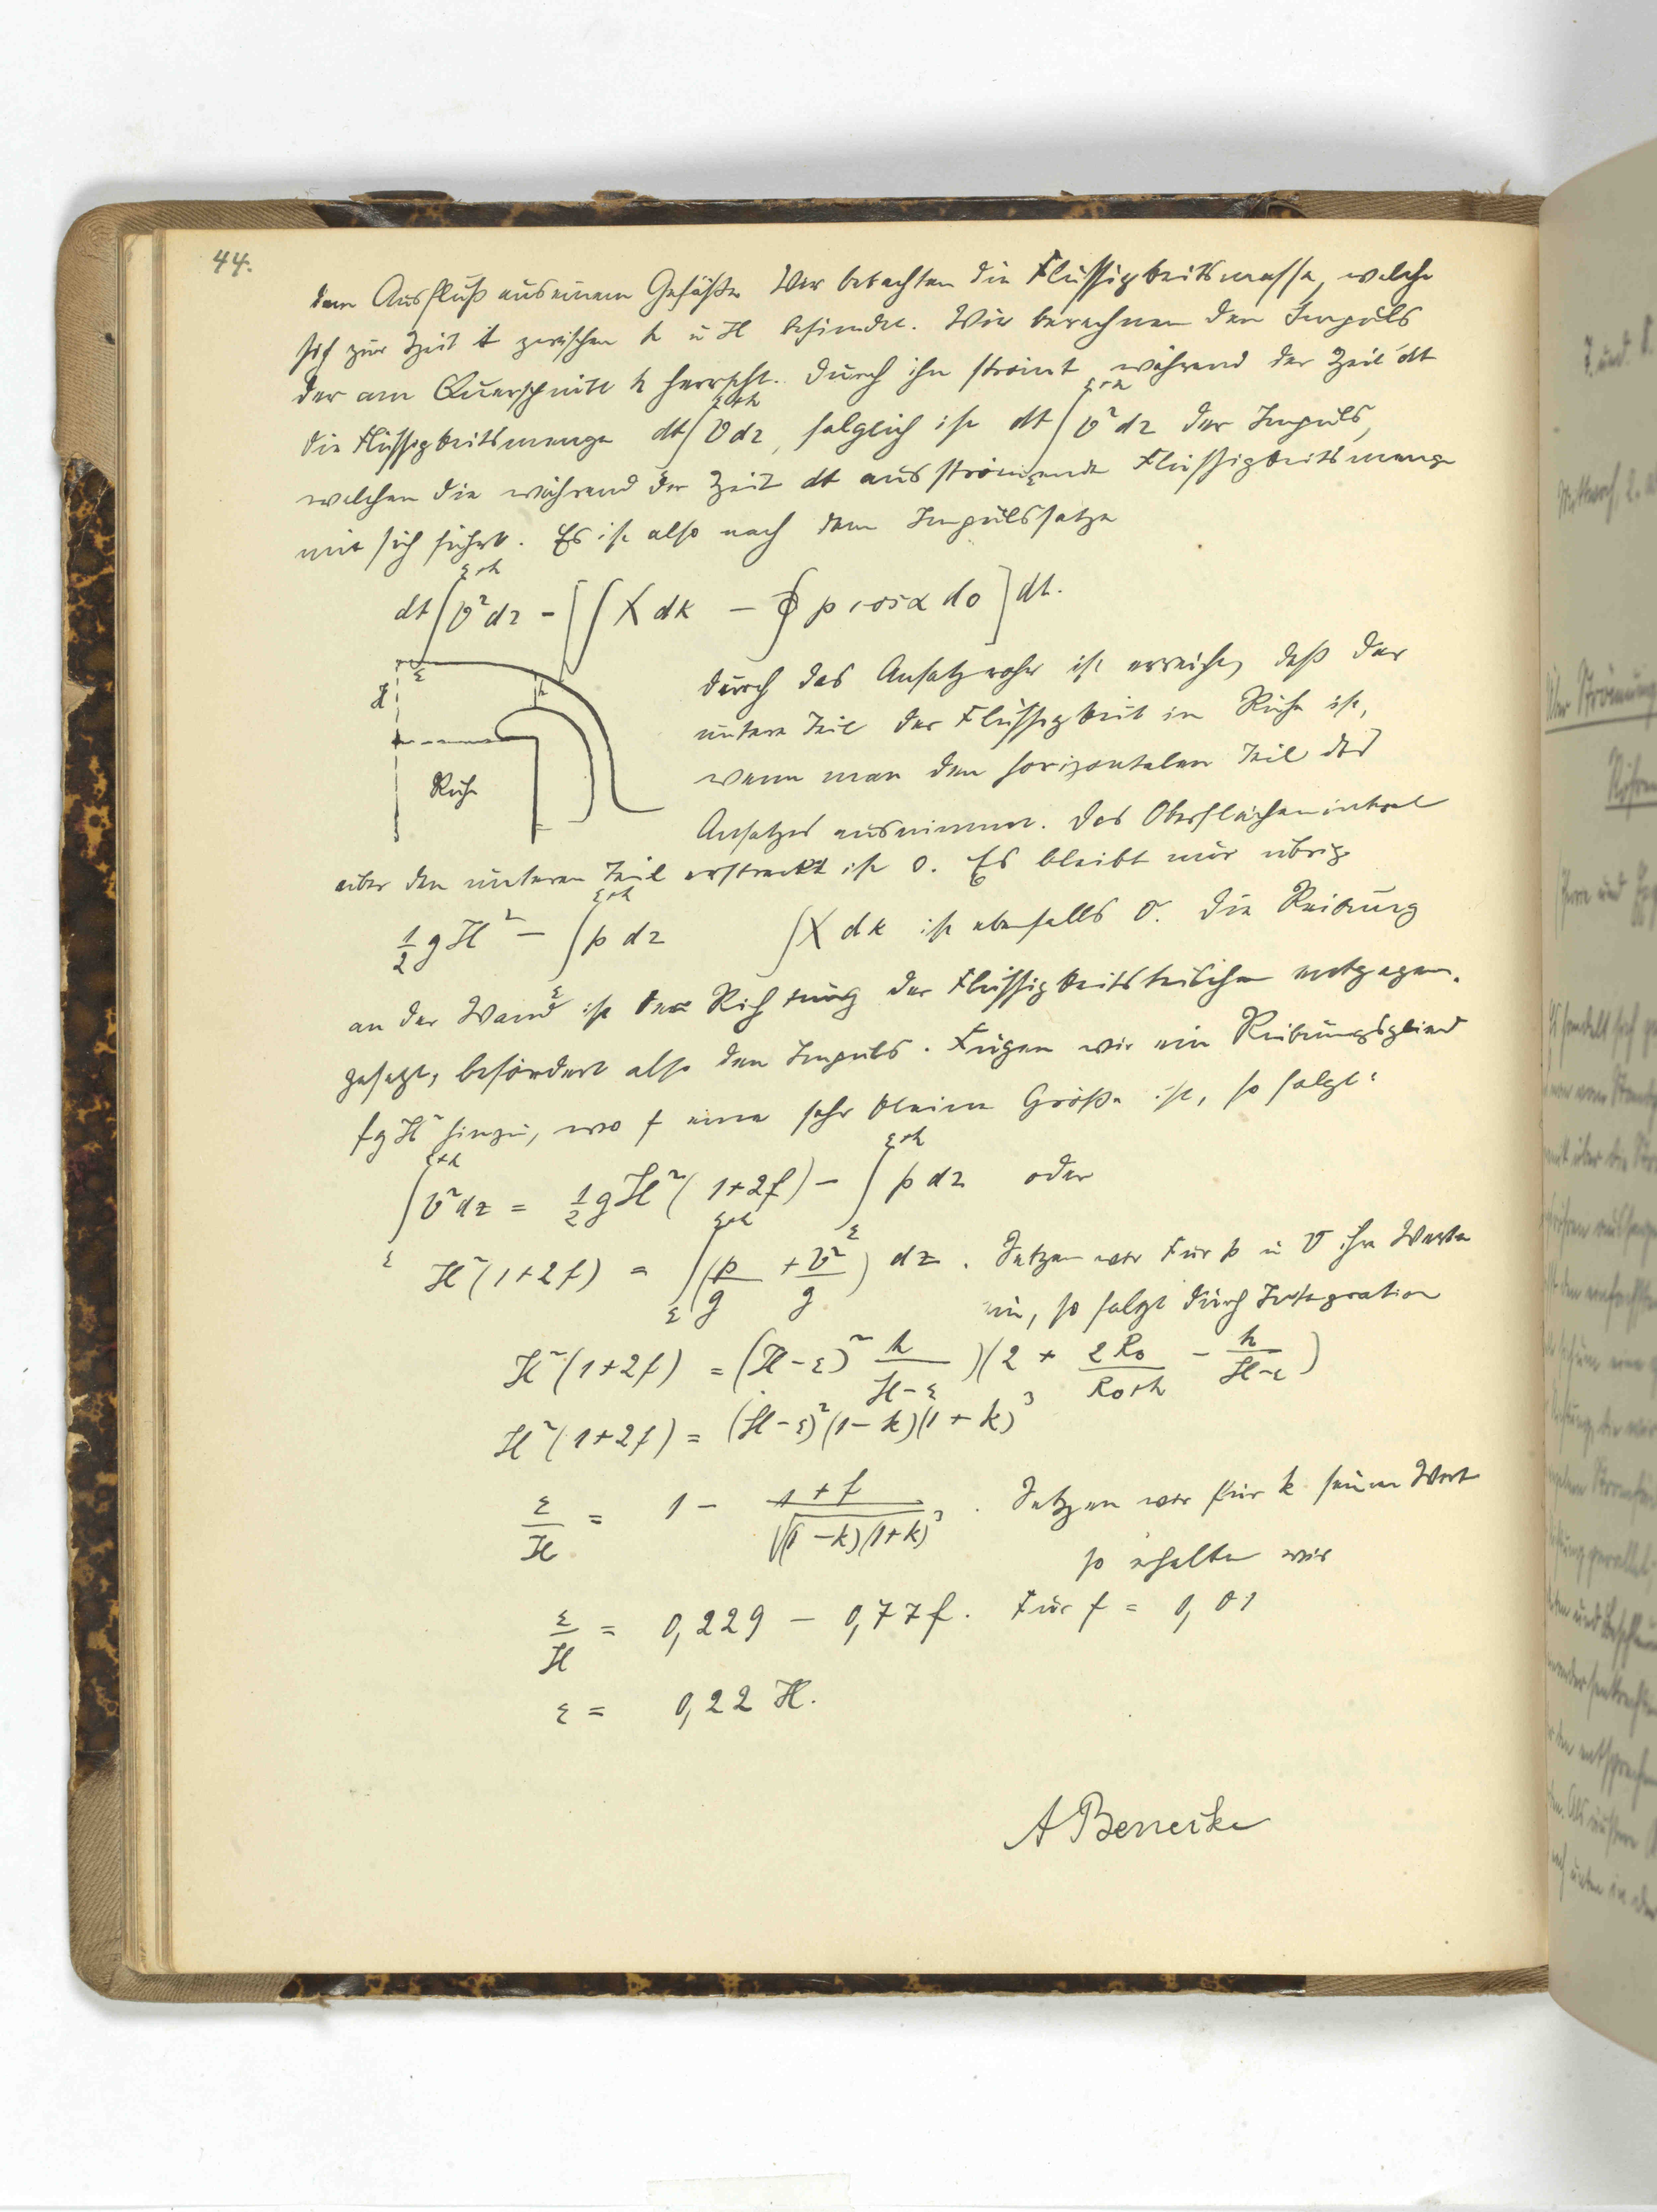 44.
dem Ausfluß aus einem Gefäße. Wir betrachten die Flüssigkeitsmasse, welche
sich zur Zeit t zwischen h u H befindet. Wir berechnen den Impuls
der am Querschnitt h herrscht. Durch ihn strömt während der Zeit dt
die Flüssigkeitsmenge dt ∫_ε^{ε+h} v dz, folglich ist dt ∫_ε^{ε+h} v² dz der Impuls,
welchen die während der Zeit dt ausströmende Flüssigkeitsmenge
mit sich führt. Es ist also nach dem Impulssatze
dt ∫_ε^{ε+h} v² dz = [∫ X dk − ∮ p cos α do] dt.
ε
H
h
Ruhe
Durch das Ansatzrohr ist erreicht, daß der
untere Teil der Flüssigkeit in Ruhe ist,
wenn man den horizontalen Teil des
Ansatzes ausnimmt. Das Oberflächenintegral
über den unteren Teil erstreckt ist 0. Es bleibt nur übrig
½ g H² − ∫_ε^{ε+h} p dz ∫ X dk ist ebenfalls 0. Die Reibung
an der Wand ist der Richtung der Flüssigkeitsteilchen entgegen-
gesetzt, befördert also den Impuls. Fügen wir ein Reibungsglied
f g H² hinzu, wo f eine sehr kleine Größe ist, so folgt:
∫_ε^{ε+h} v² dz = ½ g H² (1+2f) − ∫_ε^{ε+h} p dz oder
H² (1+2f) = ∫_ε^{ε+h} (p/g + v²/g) dz. Setzen wir für p u v ihre Werte
ein, so folgt durch Integration
H² (1+2f) = (H−ε)² h/(H−ε) )(2 + 2R₀/(R₀+h) − h/(H−ε))
H² (1+2f) = (H−ε)² (1−k)(1+k)³
ε/H = 1 − (1+f)/√((1−k)(1+k)³. Setzen wir für k seinen Wert
so erhalten wir
ε/H = 0,229 − 0,77 f. Für f = 0,01
ε = 0,22 H.
A Benecke